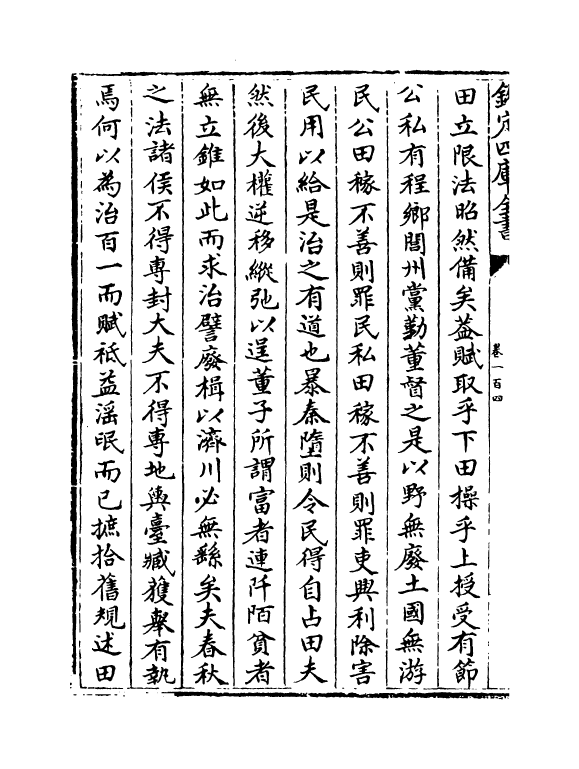 欽定四庫全書
卷一百四
田立限法昭然備矣葢賦取乎下田操乎上授受有節
公私有程鄉閭州黨勤董督之是以野無廢土國無游
民公田稼不善則罪民私田稼不善則罪吏興利除害
民用以給是治之有道也暴秦墮則令民得自占田夫
然後大權逆移縱弛以逞董子所謂富者連阡陌貧者
無立錐如此而求治譬廢楫以濟川必無繇矣夫春秋
之法諸侯不得專封大夫不得專地輿臺臧獲舉有執
焉何以為治百一而賦祗益滛氓而已摭拾舊規述田